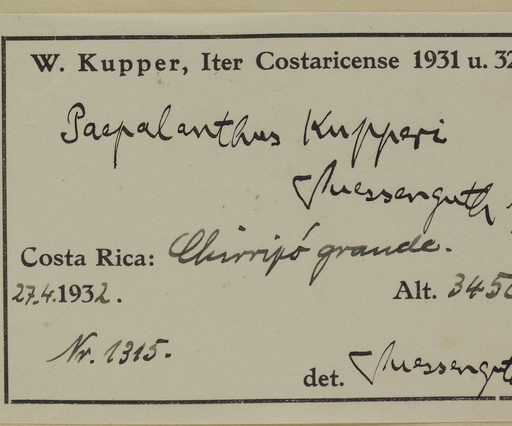 W. Kupper, Iter Costaricense 1931 u. 32
Paepalanthus Kupperi
Suessenguth
Costa Rica: Chirripó grande.
27.4.1932.
Alt. 3450
Nr. 1315.
det. Suessenguth